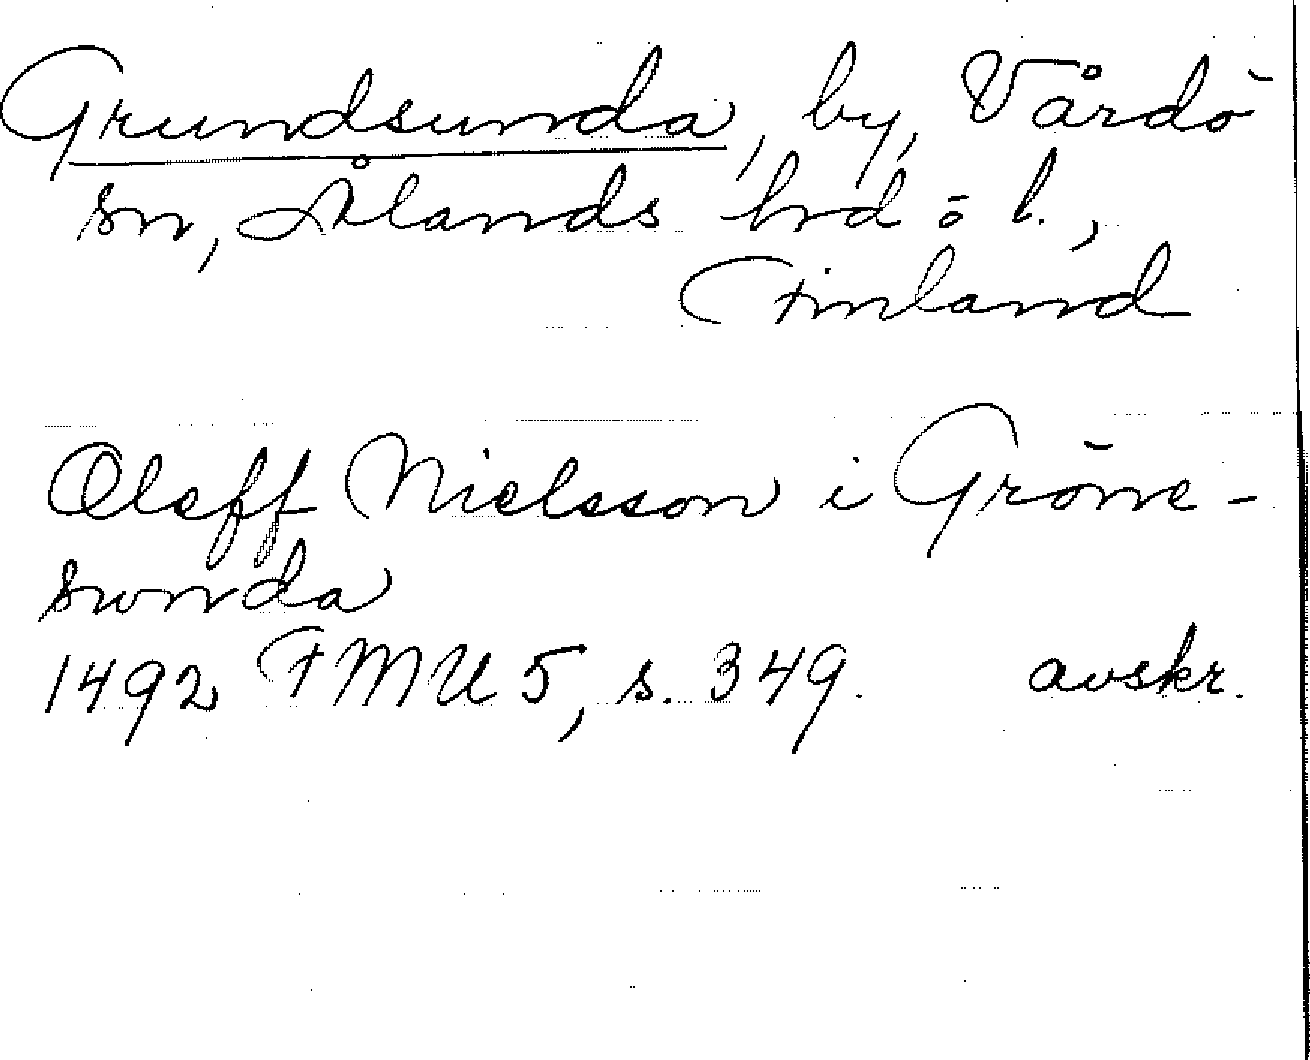 Grundsunda, by, Vårdö
sn, Ålands hrd o l.,
Finland
Oleff Nielsson i Gröne-
sunda
1492 FMU 5, s. 349. avskr.